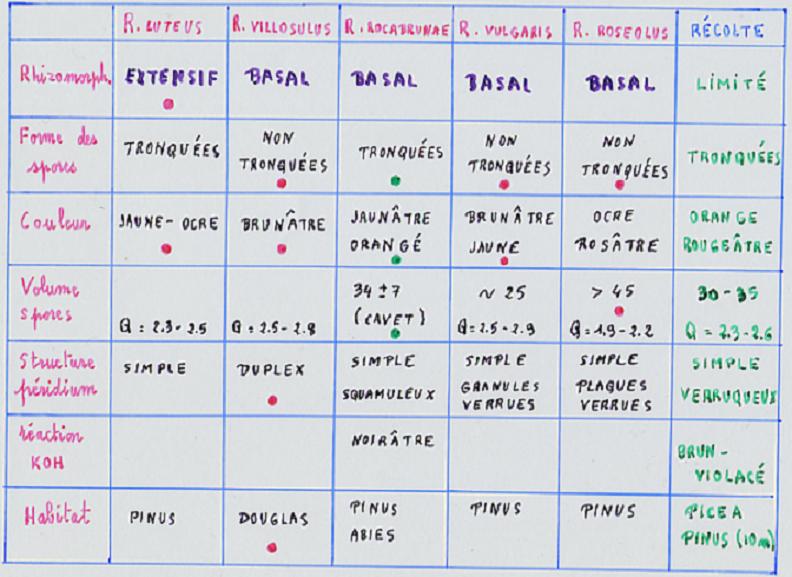 R. LUTEUS R. VILLOSULUS R. ROCABRUNAE R. VULGARIS R. ROSEOLUS RÉCOLTE
Rhizomorph. EXTENSIF BASAL BASAL BASAL BASAL LIMITÉ
Forme des spores TRONQUÉES NON TRONQUÉES TRONQUÉES NON TRONQUÉES NON TRONQUÉES TRONQUÉES
Couleur JAUNE-OCRE BRUNÂTRE JAUNÂTRE ORANGÉ BRUNÂTRE JAUNE OCRE ROSÂTRE ORANGE ROUGEÂTRE
Volume spores Q = 2.3-2.5 Q = 2.5-2.8 34 ±7 (CAVET) ~ 25 Q = 2.5-2.9 > 45 Q = 1.9-2.2 30-35 Q = 2.3-2.6
Structure péridium SIMPLE DUPLEX SIMPLE SQUAMULEUX SIMPLE GRANULES VERRUES SIMPLE PLAQUES VERRUES SIMPLE VERRUQUEUX
réaction KOH NOIRÂTRE BRUN-VIOLACÉ
Habitat PINUS DOUGLAS PINUS ABIES PINUS PINUS PICEA PINUS (10m)